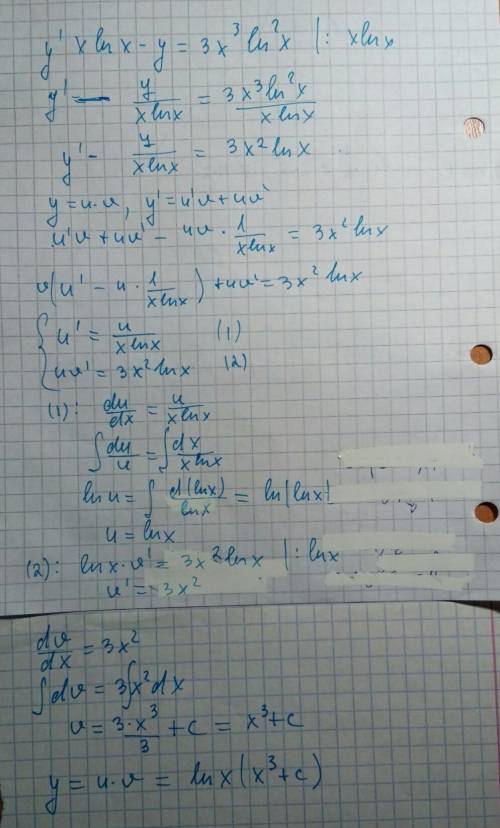 y' x ln x - y = 3x³ ln²x |: x ln x
y' - y/(x ln x) = 3x³ ln²x/(x ln x)
y' - y/(x ln x) = 3x² ln x
y = u·v, y' = u'v + uv'
u'v + uv' - uv · 1/(x ln x) = 3x² ln x
v(u' - u · 1/(x ln x)) + uv' = 3x² ln x
{ u' = u/(x ln x) (1)
uv' = 3x² ln x (2)
(1): du/dx = u/(x ln x)
∫ du/u = ∫ dx/(x ln x)
ln u = ∫ d(ln x)/ln x = ln|ln x|
u = ln x
(2): ln x · v' = 3x² ln x |: ln x
v' = 3x²
dv/dx = 3x²
∫ dv = 3∫x² dx
v = 3·x³/3 + c = x³ + c
y = u·v = ln x (x³ + c)